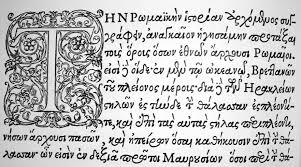 ΤΗΝ Ρωμαϊκὴν ἱστορίαν ἀρχόμενος συγ
γράφειν, ἀναγκαῖον ἡγησάμην προτάξαι
τοὺς ὅρους ὅσων ἐθνῶν ἄρχουσι Ρωμαῖοι.
εἰσὶ δὲ οἵδε· ἐν μὲν τῷ ὠκεανῷ, Βρετανῶν
τοῦ πλείονος μέρους· διὰ δὲ τῶν Ηρακλείων
στηλῶν ἐς τήνδε τὴν θάλασσαν ἐσπλέοντί
τε, καὶ ἐπὶ τὰς αὐτὰς στήλας περιπλέοντι,
νήσων ἄρχουσι πασῶν, καὶ ἠπείρων ὅσαι καθήκουσιν ἐπὶ τὴν θάλασ
σαν· ὧν εἰσὶν ἐν δεξιᾷ πρῶτοι Μαυρουσίων ὅσοι